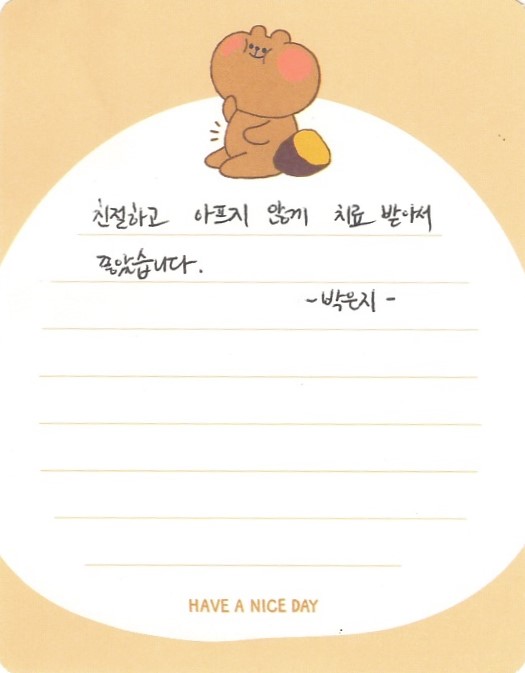 친절하고 아프지 않게 치료 받아서
좋았습니다.
-박은지-
HAVE A NICE DAY